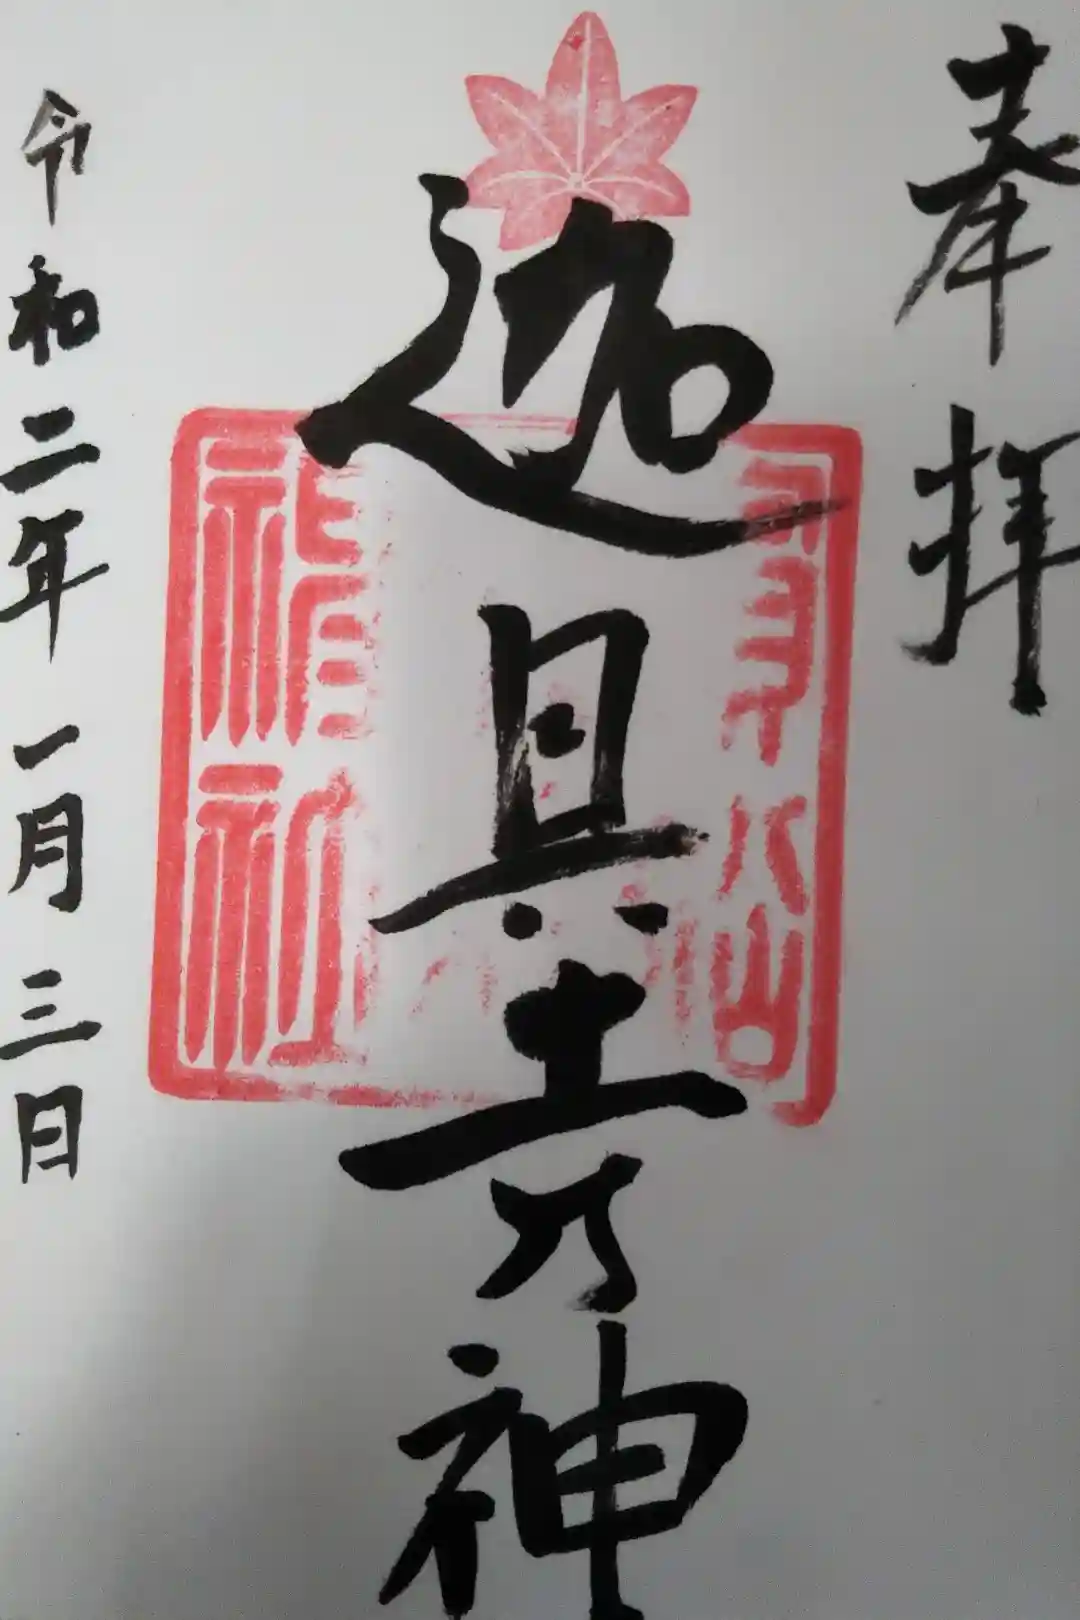 奉拝
迦具土乃神
令和二年一月三日